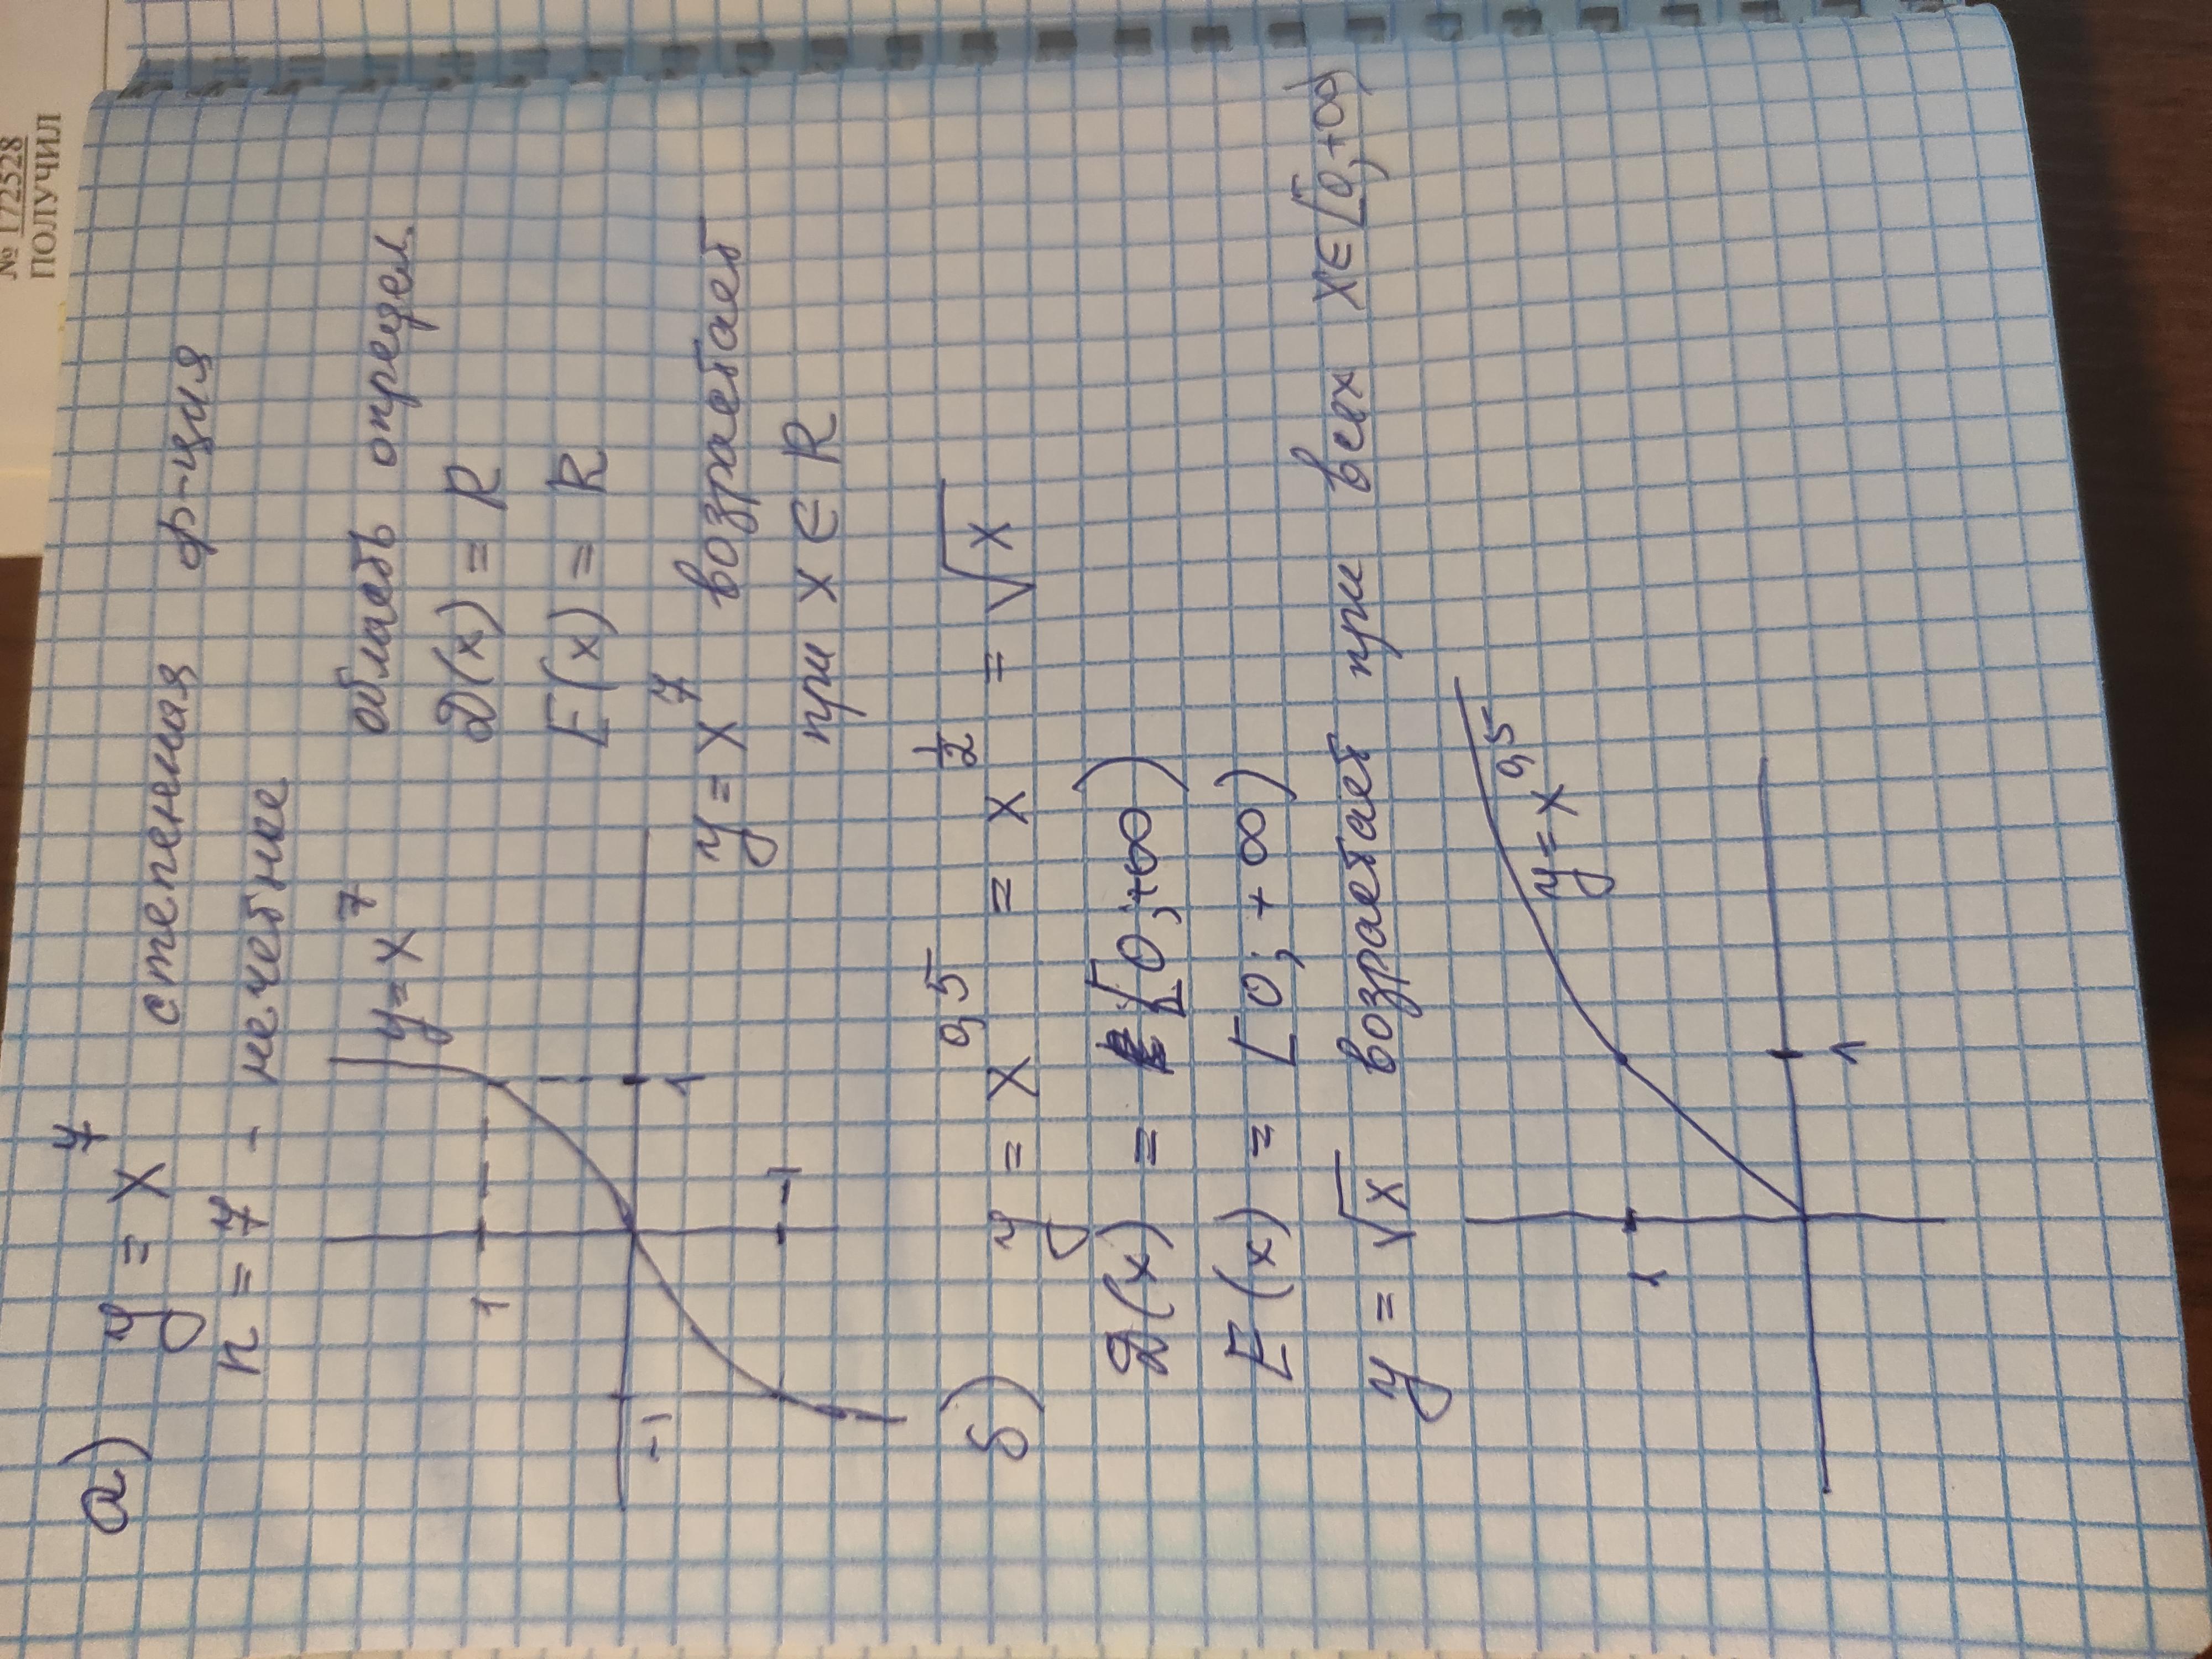 № 172528
ПОЛУЧИЛ
а) y = x⁷ степенная ф-ция
n = 7 - нечетное
y = x⁷
1
1
-1
-1
область определ.
D(x) = R
E(x) = R
y = x⁷ возрастает
при x ∈ R
б) y = x^0,5 = x^1/2 = √x
D(x) = [0; +∞)
E(x) = [0; +∞)
y = √x возрастает при всех x ∈ [0; +∞)
y = x^0,5
1
1